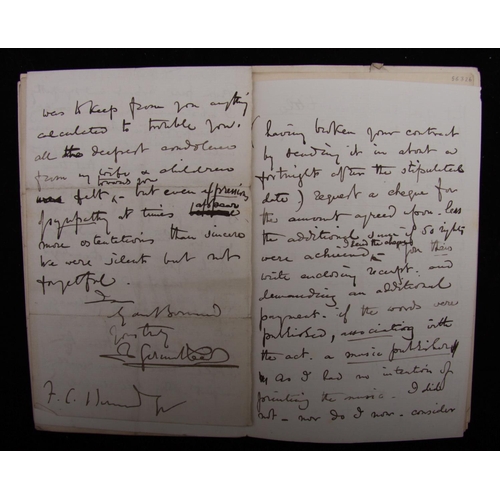 was to keep from you anything
calculated to trouble you.
all the deepest condolence
from my wife & children
toward you
was felt, but even expressions
sympathy at times appear
more ostentatious than sincere
We were silent but not
forgetful.
yours truly
F. C. Burnand
(having broken your contract
by sending it in about a
fortnight after the stipulated
date) request a cheque for
the amount agreed upon. less
the additional sum if 50 nights
were achieved. I send the cheque you then
write enclosing receipt. and
demanding an additional
payment. if the words were
published, associating with
the act. a music publisher
as I had no intention of
printing the music. I did
not - nor do I now - consider